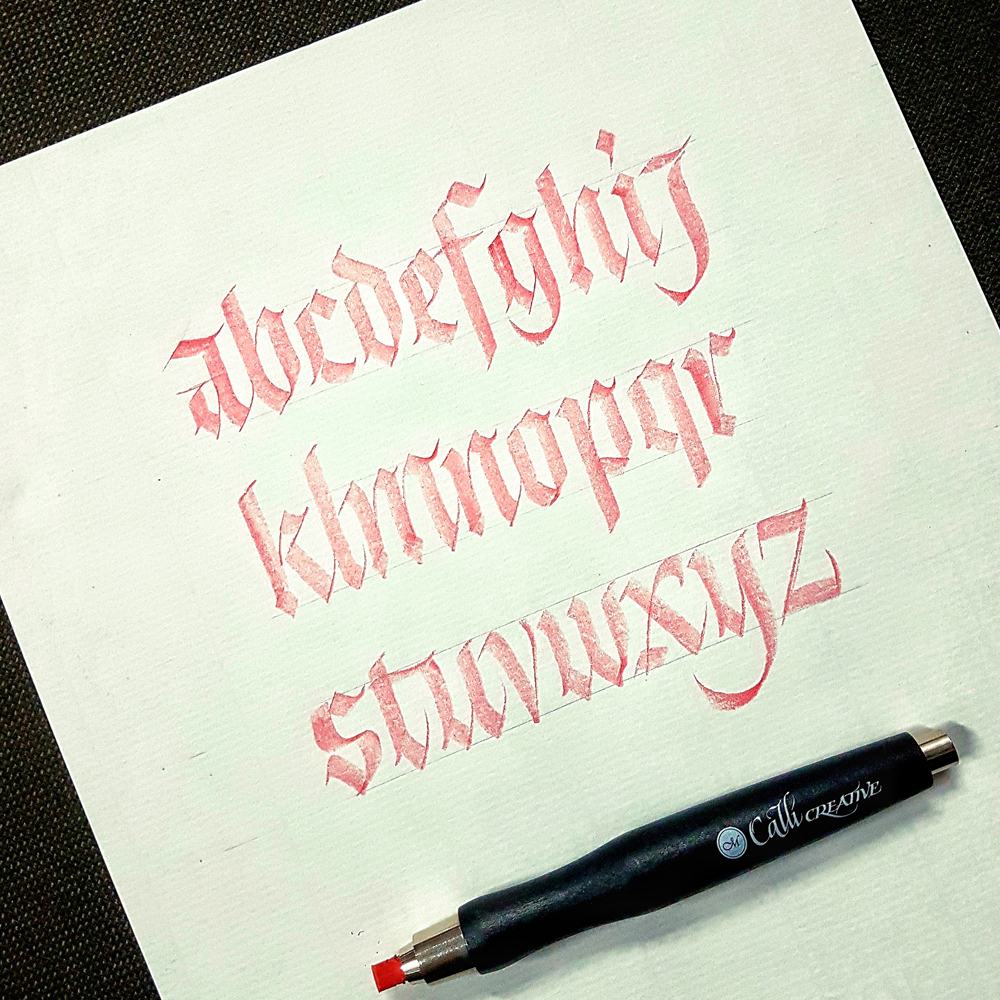 abcdefghij
klmnopqr
stuvwxyz
M Calli CREATIVE